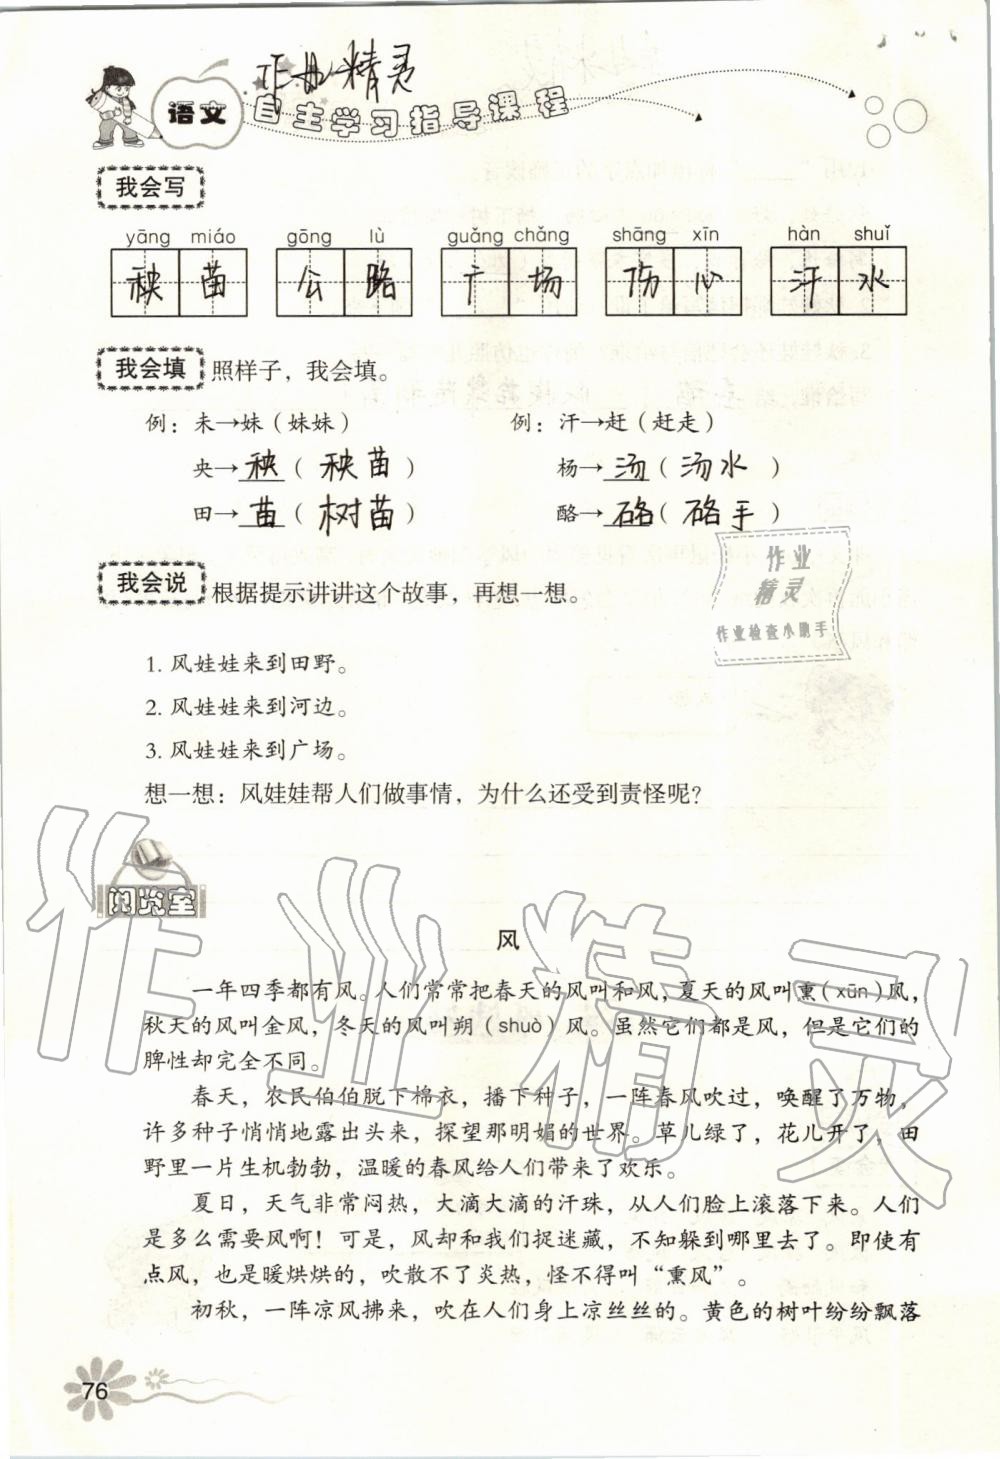 作业精灵
语文
自主学习指导课程
我会写
yāng miáo gōng lù guǎng chǎng shāng xīn hàn shuǐ
秧苗 公路 广场 伤心 汗水
我会填 照样子，我会填。
例：未→妹（妹妹） 例：汗→赶（赶走）
央→秧（秧苗） 杨→汤（汤水）
田→苗（树苗） 酪→硌（硌手）
作业
精灵
作业检查小助手
我会说 根据提示讲讲这个故事，再想一想。
1. 风娃娃来到田野。
2. 风娃娃来到河边。
3. 风娃娃来到广场。
想一想：风娃娃帮人们做事情，为什么还受到责怪呢？
阅览室
作业精灵
风
一年四季都有风。人们常常把春天的风叫和风，夏天的风叫熏（xūn）风，
秋天的风叫金风，冬天的风叫朔（shuò）风。虽然它们都是风，但是它们的
脾性却完全不同。
春天，农民伯伯脱下棉衣，播下种子，一阵春风吹过，唤醒了万物，
许多种子悄悄地露出头来，探望那明媚的世界。草儿绿了，花儿开了，田
野里一片生机勃勃，温暖的春风给人们带来了欢乐。
夏日，天气非常闷热，大滴大滴的汗珠，从人们脸上滚落下来。人们
是多么需要风啊！可是，风却和我们捉迷藏，不知躲到哪里去了。即使有
点风，也是暖烘烘的，吹散不了炎热，怪不得叫“熏风”。
初秋，一阵凉风拂来，吹在人们身上凉丝丝的。黄色的树叶纷纷飘落
76